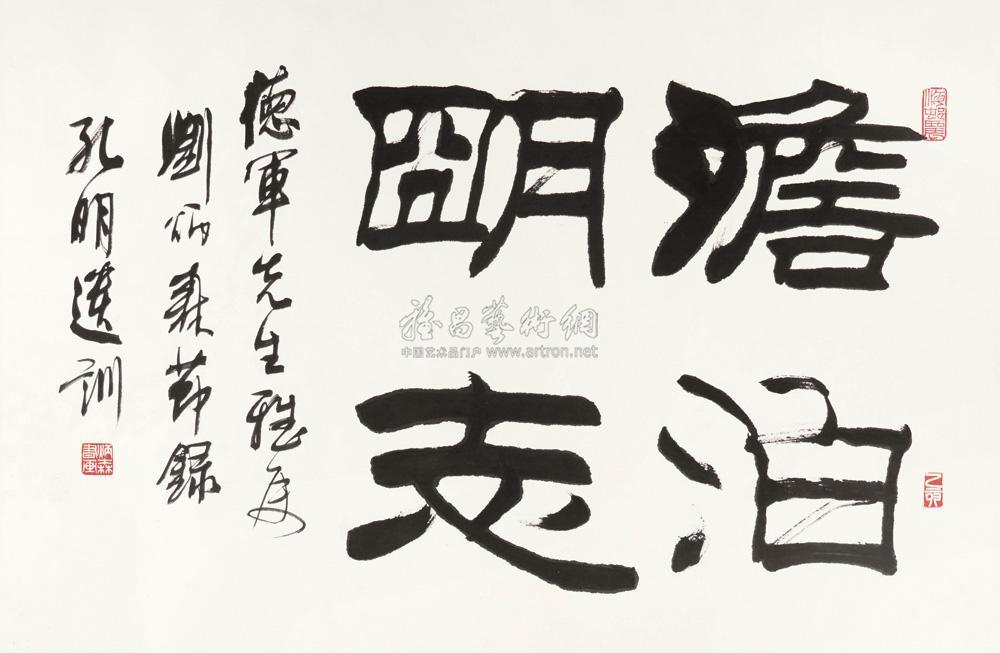 澹泊
明志
德軍先生雅屬
劉炳森節錄
孔明遺訓
炳森書画
乙亥
雅昌藝術網
中国艺术品门户 www.artron.net